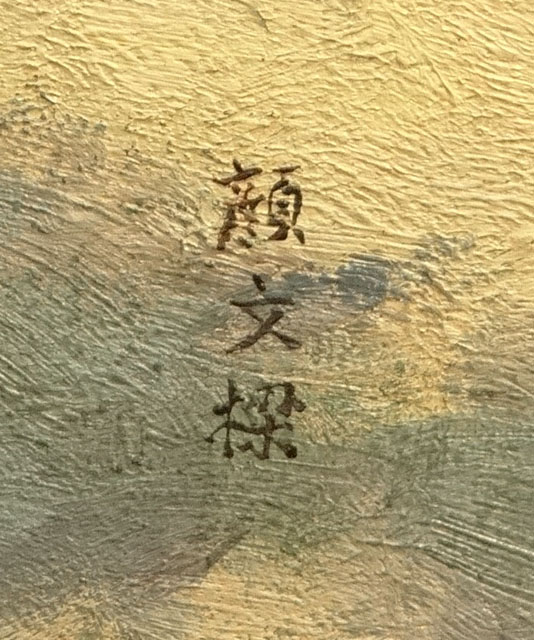 顏文樑